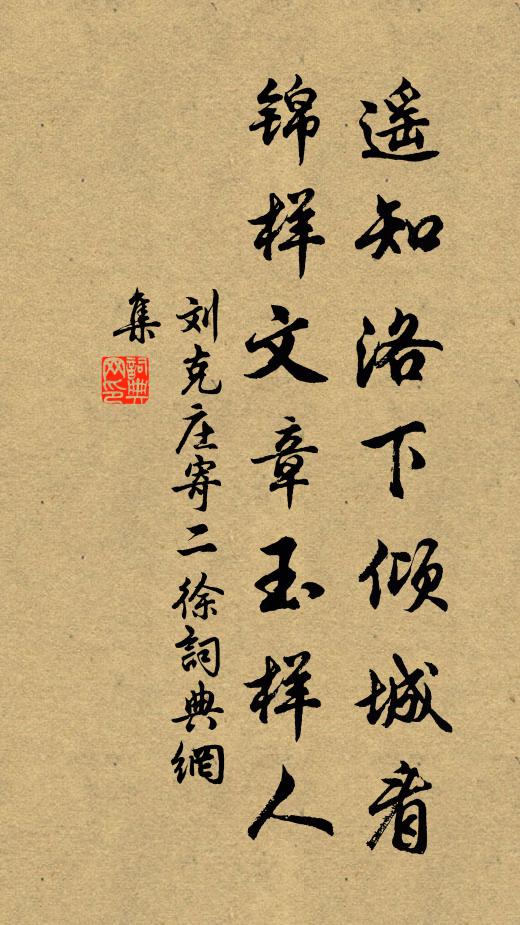 遥知洛下倾城看
锦样文章玉样人
刘克庄寄二徐詞典網
集
詞典
网印